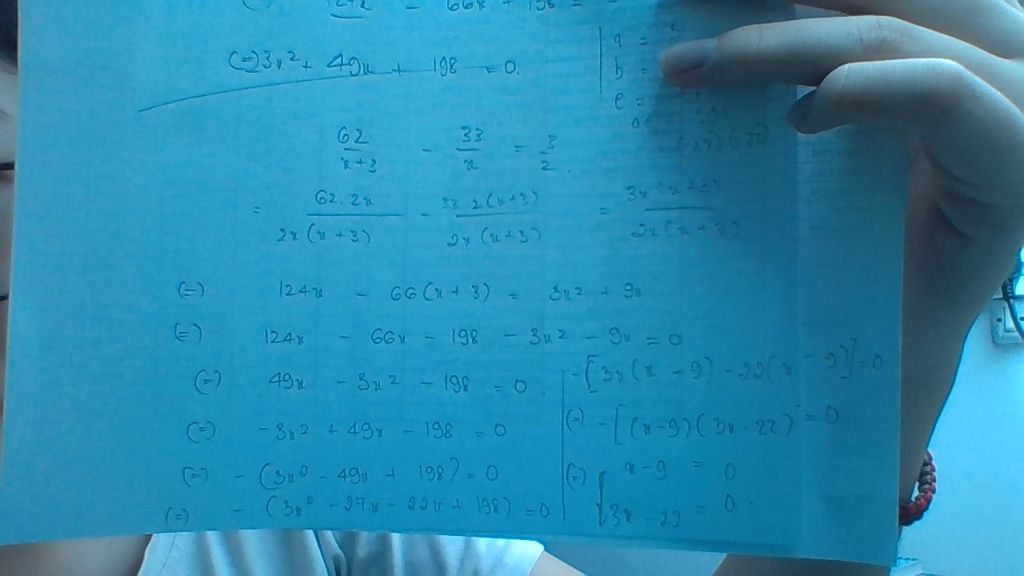 124x - 66x + 198 =
(=) 3x² + 49x + 198 = 0.
a =
b =
c =
62/(x+3) - 33/x = 3/2.
= 62.2x/2x(x+3) - 33.2(x+3)/2x(x+3) = 3x(x+3)/2x(x+3)
(=) 124x - 66(x+3) = 3x² + 9x
(=) 124x - 66x - 198 - 3x² - 9x = 0
(=) 49x - 3x² - 198 = 0.
(=) -3x² + 49x - 198 = 0
(=) - (3x² - 49x + 198) = 0
(=) - (3x² - 27x - 22x + 198) = 0
- [3x(x - 9) - 22(x - 9)] = 0
(=) - [(x-9)(3x-22) = 0
(=) { x-9 = 0
3x - 22 = 0